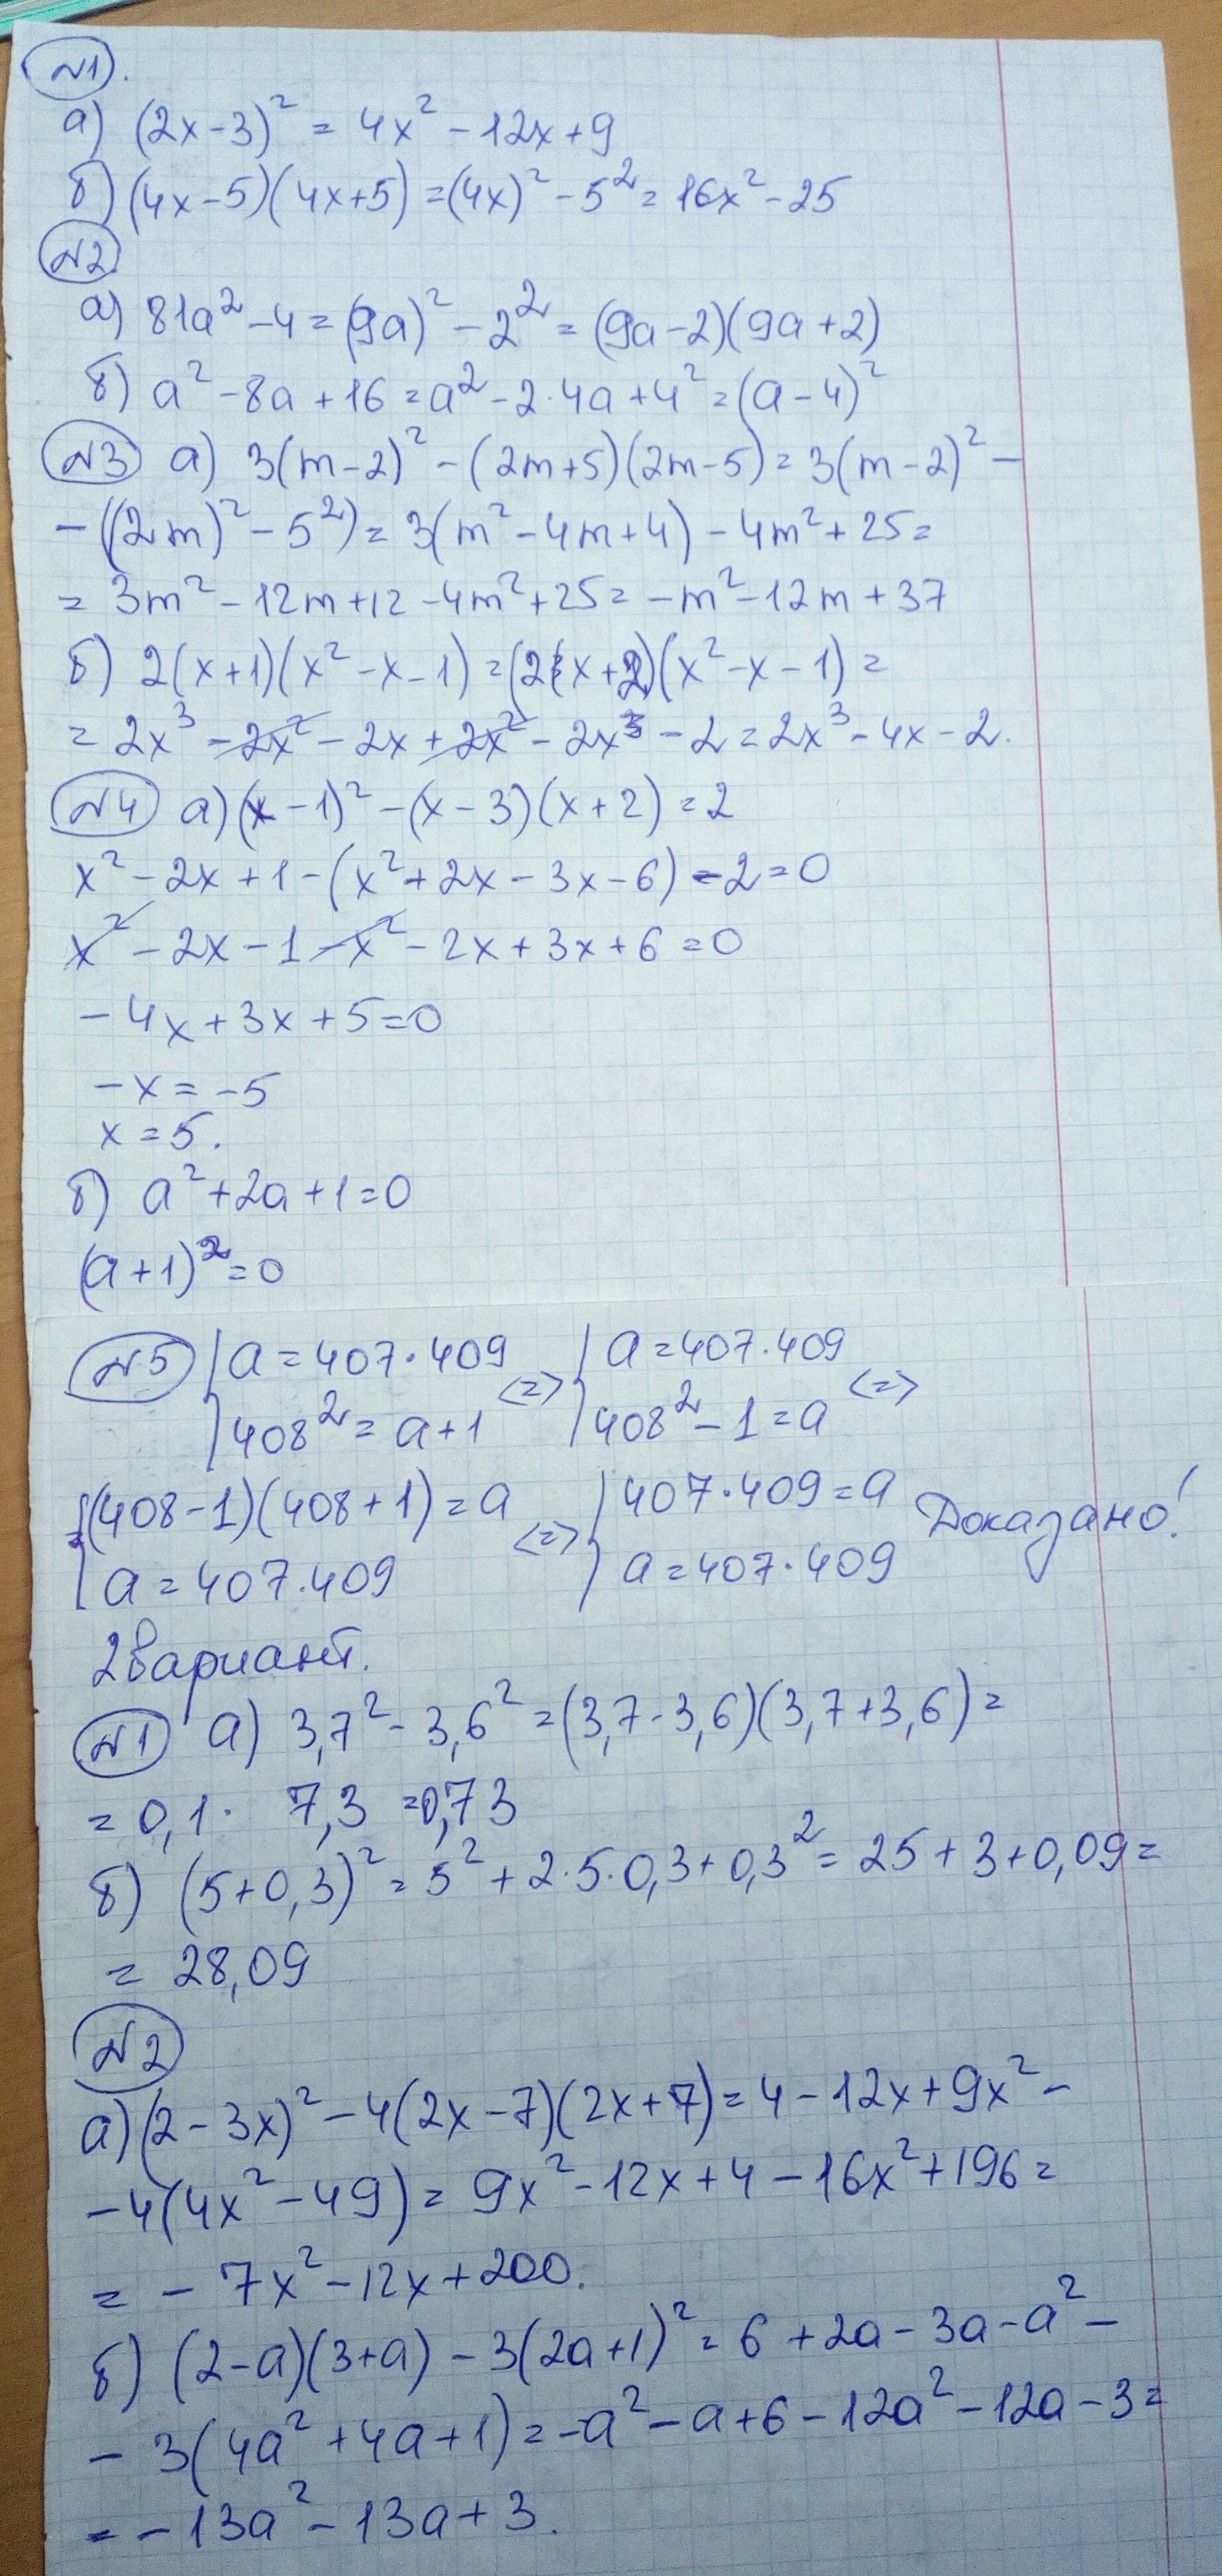 №1.
а) (2x-3)² = 4x² - 12x + 9
б) (4x-5)(4x+5) = (4x)² - 5² = 16x² - 25
№2
а) 81a² - 4 = (9a)² - 2² = (9a-2)(9a+2)
б) a² - 8a + 16 = a² - 2·4a + 4² = (a-4)²
№3 а) 3(m-2)² - (2m+5)(2m-5) = 3(m-2)² -
- ((2m)² - 5²) = 3(m² - 4m + 4) - 4m² + 25 =
= 3m² - 12m + 12 - 4m² + 25 = -m² - 12m + 37
б) 2(x+1)(x² - x - 1) = (2x+2)(x² - x - 1) =
= 2x³ - 2x² - 2x + 2x² - 2x - 2 = 2x³ - 4x - 2.
№4 а) (x-1)² - (x-3)(x+2) = 2
x² - 2x + 1 - (x² + 2x - 3x - 6) - 2 = 0
x² - 2x - 1 - x² - 2x + 3x + 6 = 0
-4x + 3x + 5 = 0
-x = -5
x = 5.
б) a² + 2a + 1 = 0
(a+1)² = 0
№5 { a = 407·409 <=> { a = 407·409 <=>
408² = a + 1 408² - 1 = a
{ (408-1)(408+1) = a <=> { 407·409 = a Доказано!
a = 407·409 a = 407·409
2 вариант.
№1 а) 3,7² - 3,6² = (3,7-3,6)(3,7+3,6) =
= 0,1 · 7,3 = 0,73
б) (5+0,3)² = 5² + 2·5·0,3 + 0,3² = 25 + 3 + 0,09 =
= 28,09
№2
а) (2-3x)² - 4(2x-7)(2x+7) = 4 - 12x + 9x² -
- 4(4x² - 49) = 9x² - 12x + 4 - 16x² + 196 =
= - 7x² - 12x + 200.
б) (2-a)(3+a) - 3(2a+1)² = 6 + 2a - 3a - a² -
- 3(4a² + 4a + 1) = -a² - a + 6 - 12a² - 12a - 3 =
= - 13a² - 13a + 3.